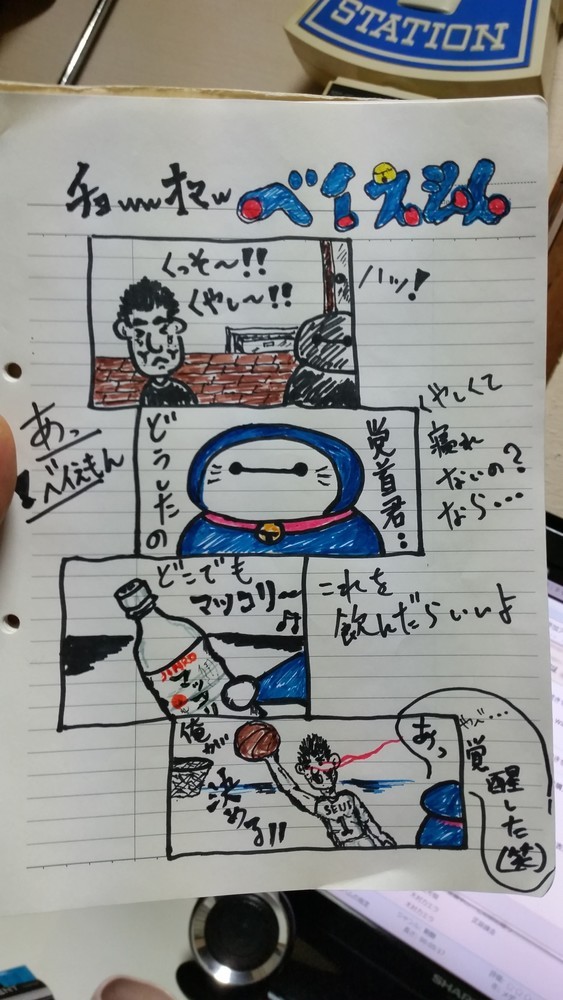 STATION
チョwwオマw ベイえもん
くっそ〜!!
くやし〜!!
ハッ!
あっ
!ベイえもん
どうしたの
覚首君…
くやしくて
寝れ
ないの?
なら…
どこでも
マッコリ〜♪
JINRO
マッコリ
これを
飲んだらいいよ
俺が
決める!!
SEUI
1
あっ
やべ…
覚醒した
(笑)
SHARP